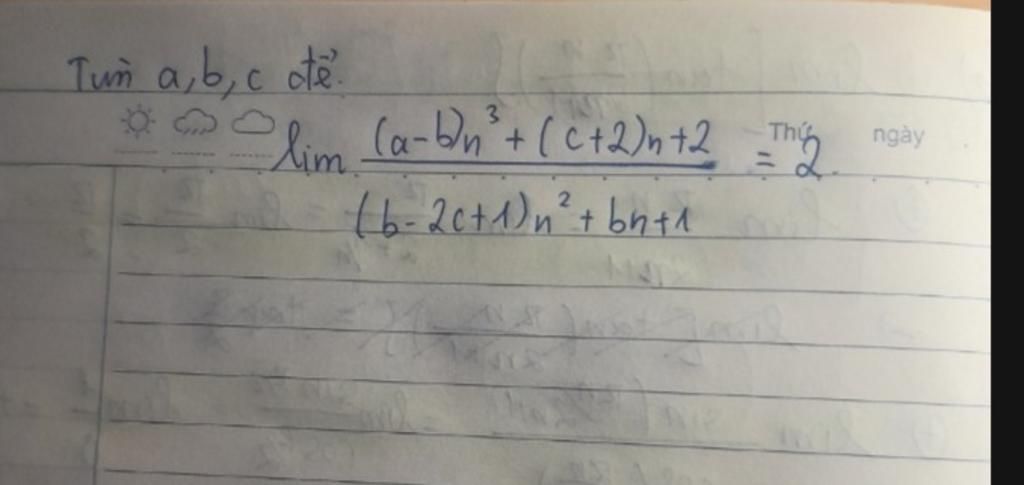 Tìm a,b,c để.
Thứ ngày
lim (a-b)n³ + (c+2)n+2 / (b-2c+1)n² + bn+1 = 2